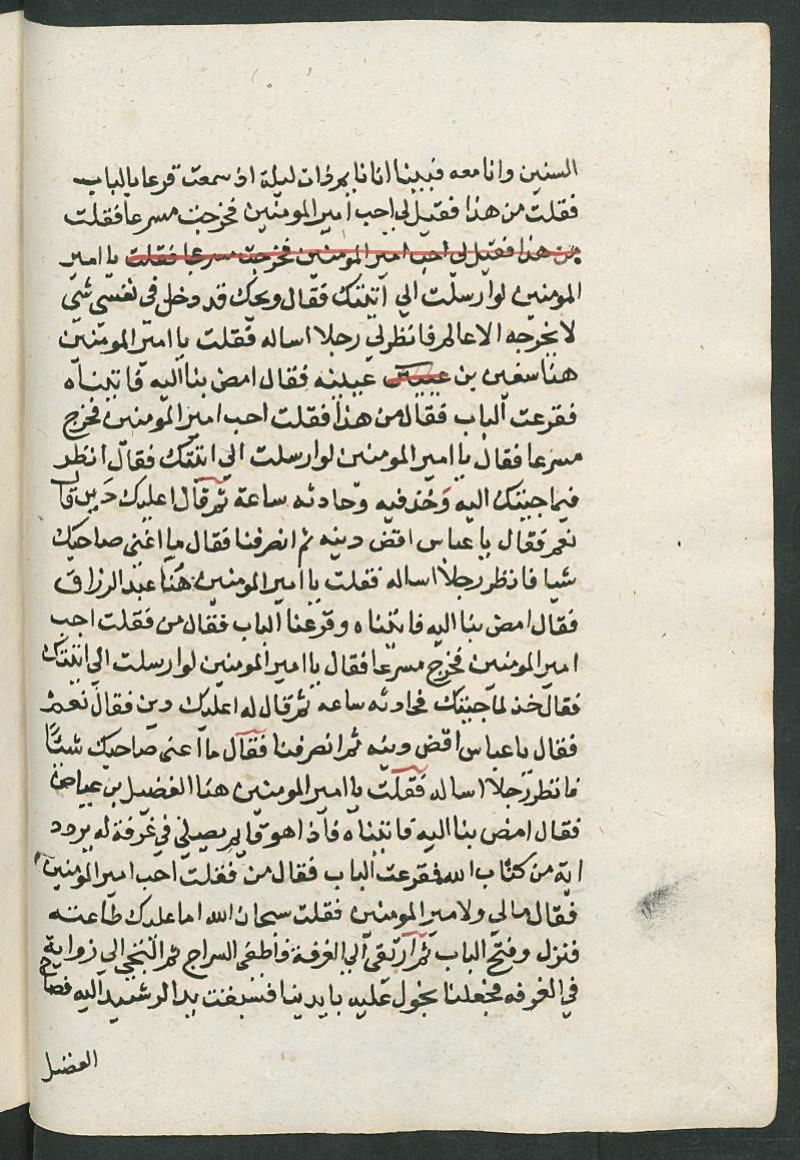 السنين وانا معه فبينا انا نايم ذات ليلة اذ سمعت قرعا بالباب
فقلت من هذا فقيل لي اجب امير المومنين فخرجت مسرعا فقلت
من هذا فقيل لي اجب امير المومنين فخرجت مسرعا فقلت يا امير
المومنين لو ارسلت الي اتيتك فقال ويحك قد دخل في نفسي شي
لا يخرجه الا عالم فانظر لي رجلا اساله فقلت يا امير المومنين
هنا سفين بن عييين عيينه فقال امض بنا اليه فاتيناه
فقرعت الباب فقال من هذا فقلت اجب امير المومنين فخرج
مسرعا فقال يا امير المومنين لو ارسلت الي اتيتك فقال انظر
فيما جيتك اليه وخذ فيه وحادثه ساعة ثم قال اعليك دين قال
نعم فقال يا عباس اقض دينه ثم انصرفنا فقال ما اغني صاحبك
شيا فانظر رجلا اساله فقلت يا امير المومنين هنا عبد الرزاق
فقال امض بنا اليه فاتيناه وقرعنا الباب فقال من فقلت اجب
امير المومنين فخرج مسرعا فقال يا امير المومنين لو ارسلت الي اتيتك
فقال خذ لما جيتك فحادثه ساعه ثم قال له اعليك دين فقال نعم
فقال يا عباس اقض دينه ثم انصرفنا فقال ما اغني صاحبك شئا
فانظر رجلا اساله فقلت يا امير المومنين هنا الفضيل بن عياض
فقال امض بنا اليه فاتيناه فاذا هو قايم يصلي في غرفة له يردد
اية من كتاب الله فقرعت الباب فقال من فقلت اجب امير المومنين
فقال مالي ولامير المومنين فقلت سبحان الله اما عليك طاعته
فنزل وفتح الباب ثم ارتقي الي الغرفة فاطفى السراج ثم التجي الي زواية
في الغرفه فجعلنا نجول عليه بايدينا فسبقت يد الرشيد اليه فصاح
الفضيل